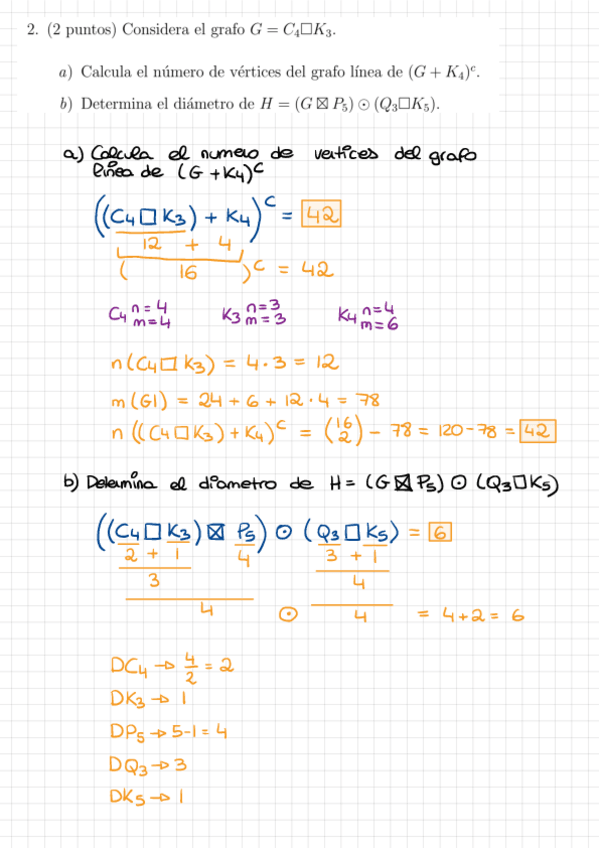 2. (2 puntos) Considera el grafo G = C₄□K₃.
a) Calcula el número de vértices del grafo línea de (G + K₄)ᶜ.
b) Determina el diámetro de H = (G ⊠ P₅) ⊙ (Q₃□K₅).
a) Calcula el numero de vertices del grafo
línea de (G + K₄)ᶜ
((C₄ □ K₃) + K₄)ᶜ = 42
12 + 4
( 16 )ᶜ = 42
C₄ n = 4 m = 4 K₃ n = 3 m = 3 K₄ n = 4 m = 6
n (C₄ □ K₃) = 4 · 3 = 12
m (G1) = 24 + 6 + 12 · 4 = 78
n ((C₄ □ K₃) + K₄)ᶜ = (16 2) - 78 = 120 - 78 = 42
b) Determina el diametro de H = (G ⊠ P₅) ⊙ (Q₃ □ K₅)
((C₄ □ K₃) ⊠ P₅) ⊙ (Q₃ □ K₅) = 6
2 + 1 4 3 + 1
3 4
4 ⊙ 4 = 4 + 2 = 6
DC₄ → 4/2 = 2
DK₃ → 1
DP₅ → 5-1 = 4
DQ₃ → 3
DK₅ → 1